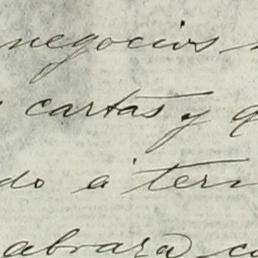 negocios
cartas y q
do a ter
abraza co